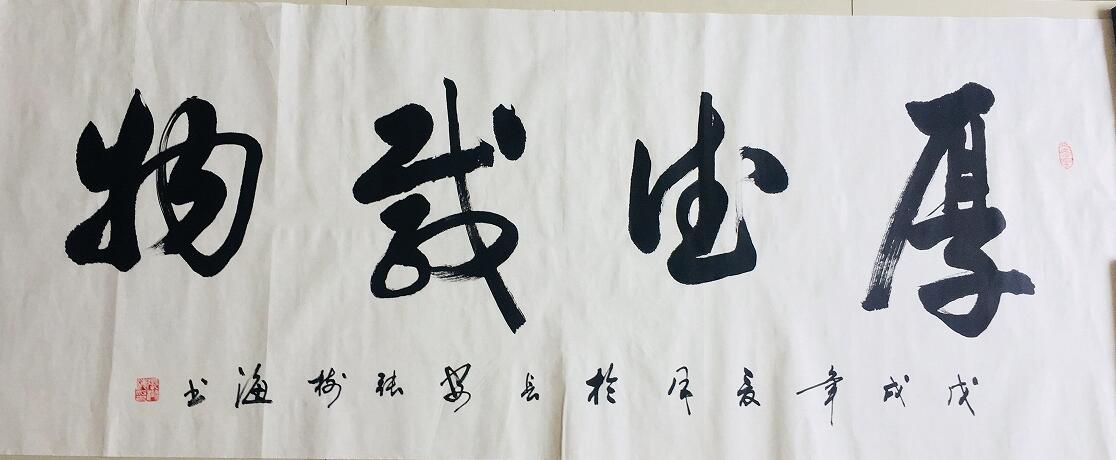 厚德载物
戊戌年夏月於长安张树海书